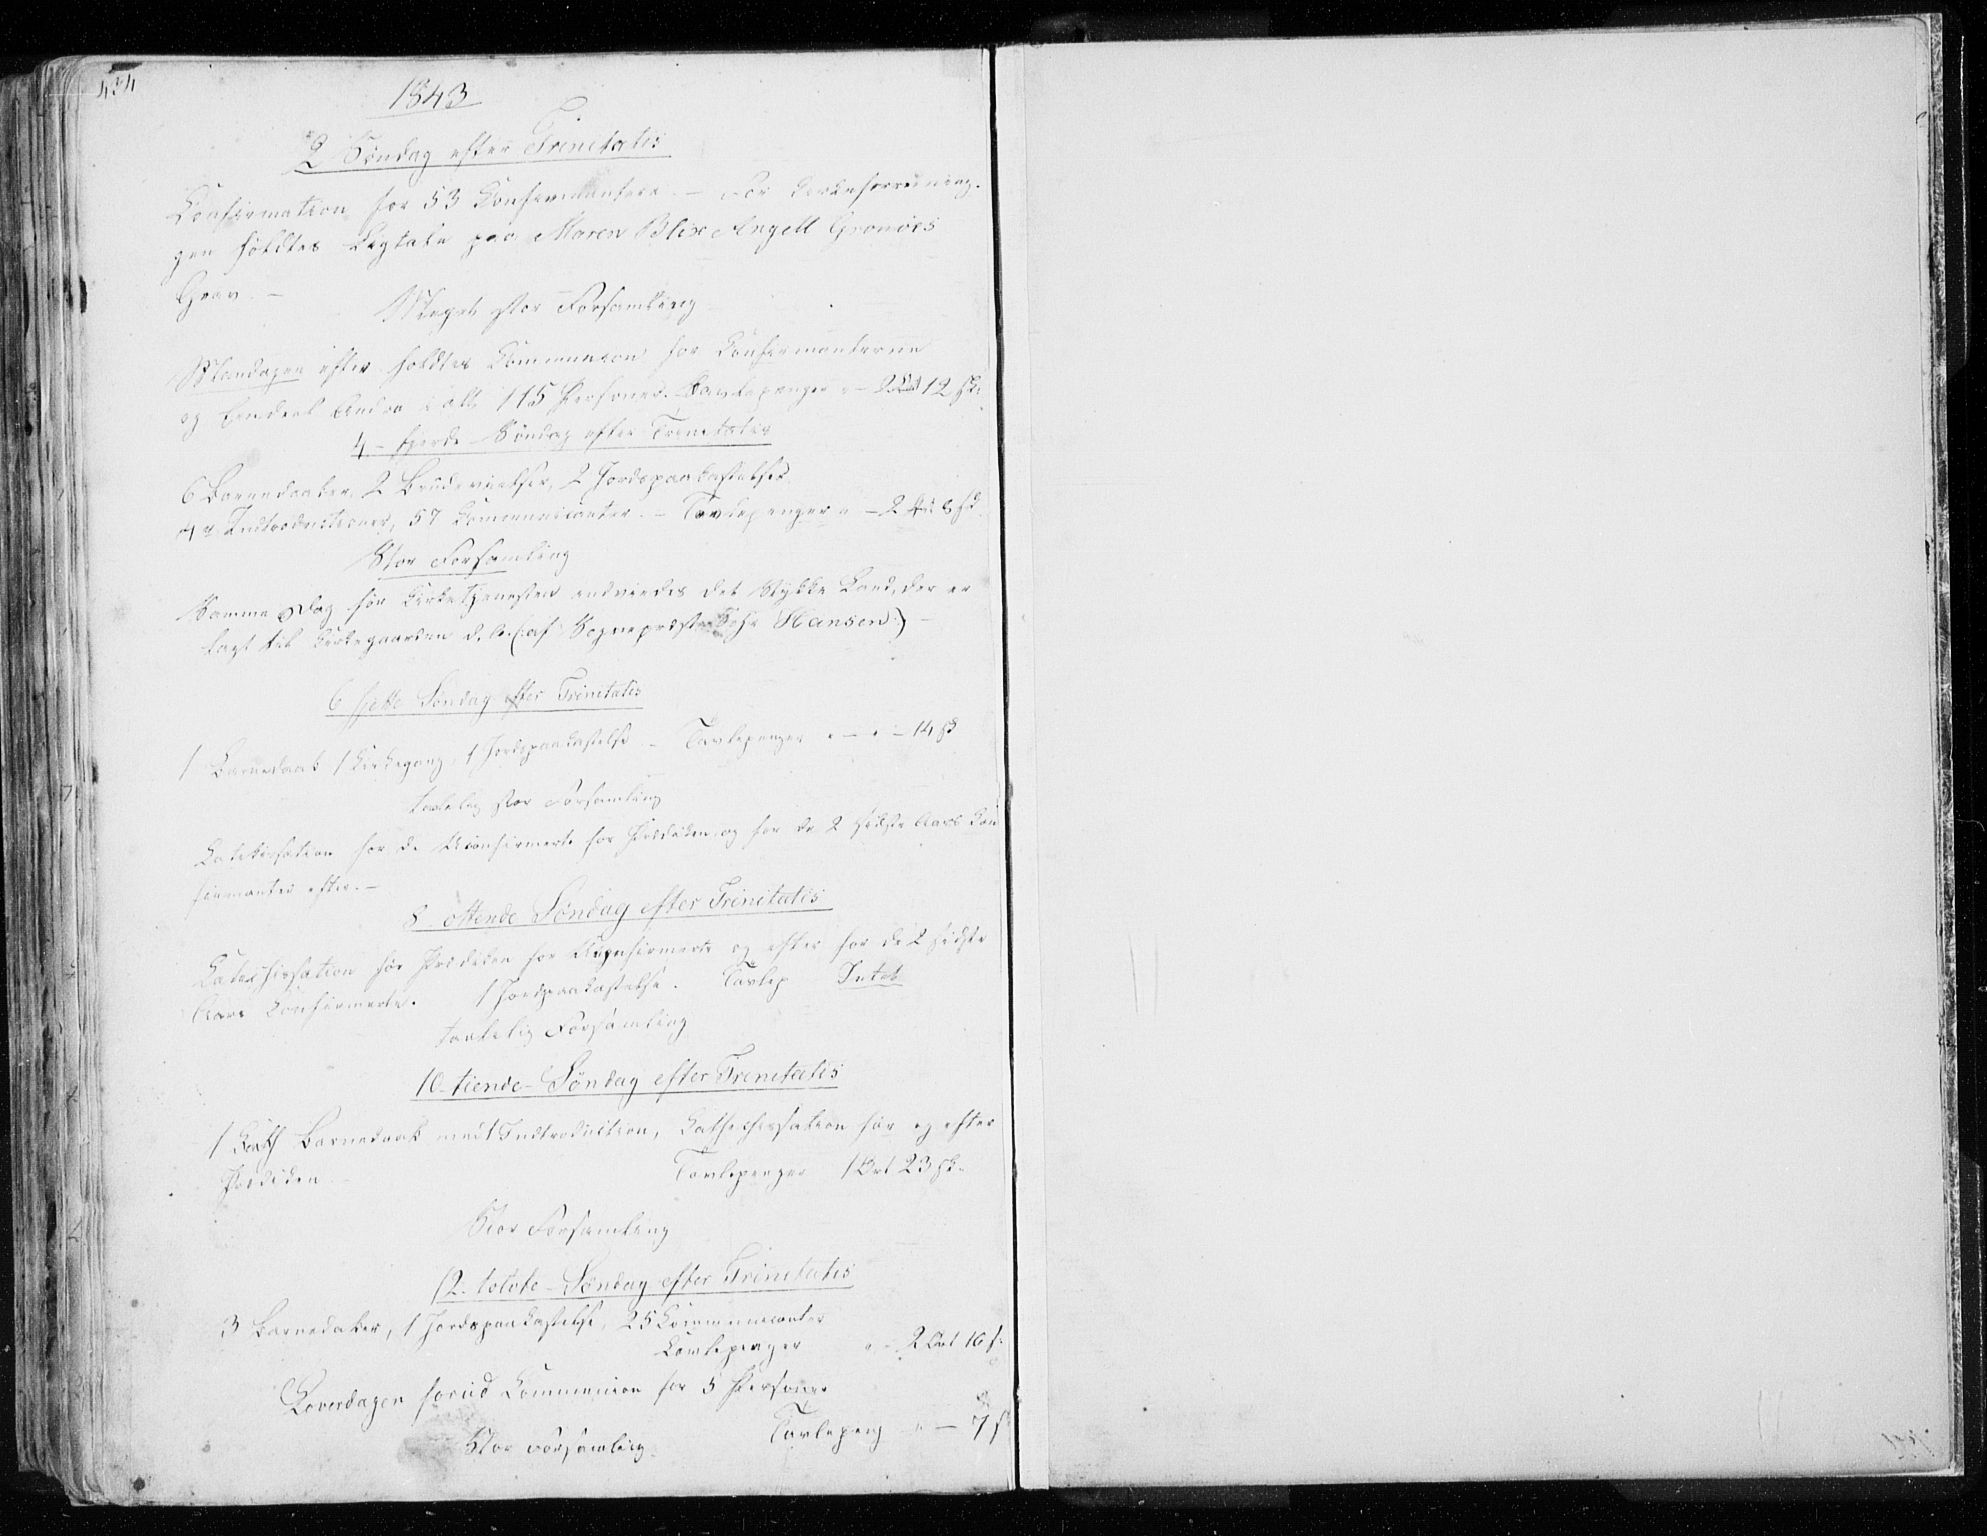 434
1843
2 Søndag efter Trinitatis
Confirmation for 53 Confirmantere. – Før Kirkeforretning-
gen holdtes Ligtale paa Maren Blix Angell Grønøes
Grav. –
Meget stor Forsamling
Mandagen efter holdtes Communion for Confirmanterne
og Endeel Andre i alt 115 Personer. Tavlepenger " – 2 Ort 12 sk:
4 – fjerde Søndag efter Trinitatis
6 Barnedaaber, 2 Brudevielser, 2 Jordspaakastelser
Introductioner, 57 Communicanter. – Tavlepenger " – 2 Ort 8 sk.
Stor Forsamling
Samme Dag før Kirketjenesten indviedes det Stykke Land, der er
lagt til Kirkegaarden (: af Sognepræst Hansen :) –
6 sjette Søndag efter Trinitatis
1 Barnedaab 1 Kirkegang, 1 Jordspaakastelse – Tavlepenger " – " – 14 sk
temmelig stor Forsamling
Catechisation for de Uconfirmerte før Prædiken og for de 2 sidste Aars Con
firmanter efter. –
8 – ottende Søndag efter Trinitatis
Catechisation før Prædiken for Uconfirmerte og efter for de 2 sidste
Aars Confirmerte. 1 Jordpaakastelse. Tavlep Intet
Forsamling
10 – tiende – Søndag efter Trinitatis
1 Barnedaab med 1 Indtroduction, Cathechisation før og efter
Prædiken – Tavlepenger 1 Ort 23 sk.
Stor Forsamling
12. tolvte – Søndag efter Trinitatis
3 Barnedaaber, 1 Jordspaakastelse, 25 Communicanter
Tavlepenger " – 2 Ort 16 s.
Løverdagen forud Communion for 5 Personer
Tavlepeng " – 7 s
Stor Forsamling